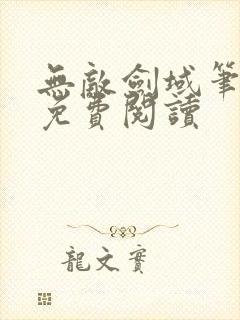 無敵劍域筆
免費閱讀
龍文實